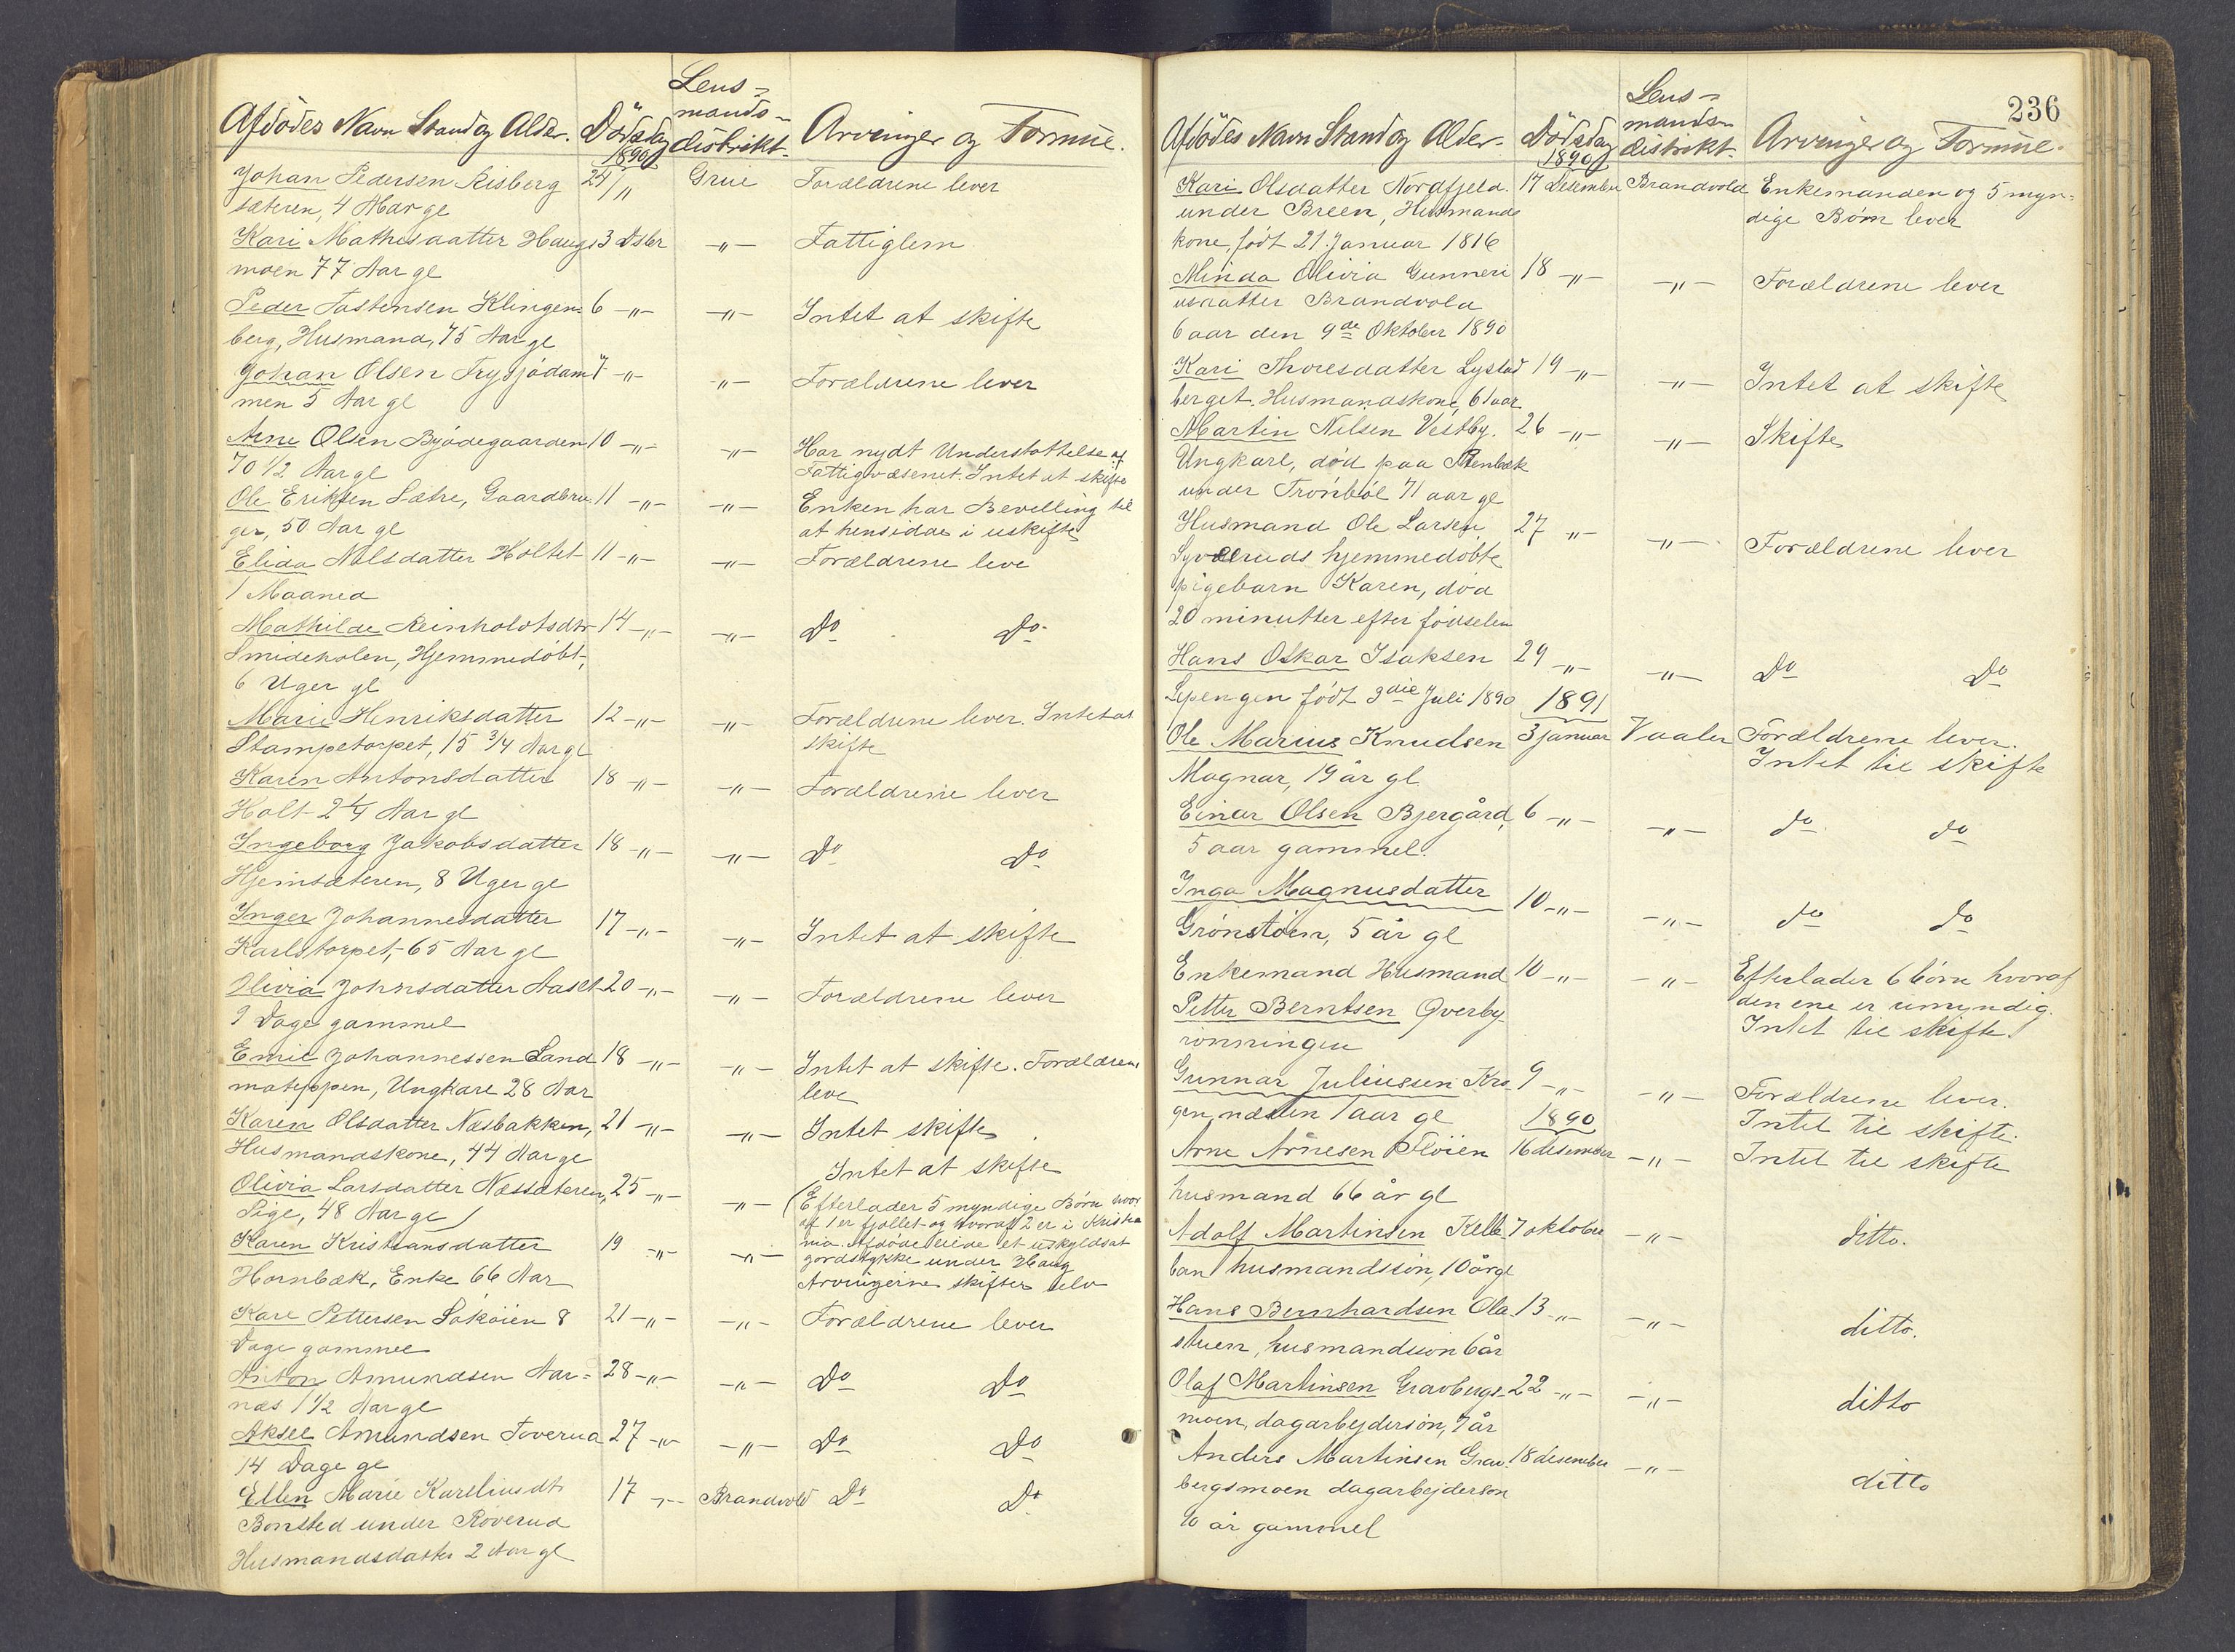 Lens-
mands-
Afdödes Navn Stand og Alder. Dödsdag distrikt. Arvinger og Formue.
1890
Johan Pedersen Risberg 24/11 Grue Forældrene lever
sæteren, 4 Aar gl
Kari Mathisdatter Haugs 3 Dsbr -"- Fattiglem
moen 77 Aar gl
Peder Tostensen Klingen- 6 -"- -"- Intet at skifte
berg, Husmand, 75 Aar gl
Johan Olsen Frysjødam 7 -"- -"- Forældrene lever
men 5 Aar gl
Arne Olsen Byødegaarden 10 -"- -"- Har nydt Understøttelse af
70 1/2 Aar gl Fattigvæsenet. Intet at skifte
Ole Eriksen Sætre, Gaardbru 11 -"- -"- Enken har Bevilling til
ger, 50 Aar gl at hensidde i uskifte
Elida Nilsdatter Holtet 11 -"- -"- Forældrene leve
1 Maaned
Mathilde Reinholdtsdtr 14 -"- -"- Do Do
Smideholen, Hjemmedöbt,
6 Uger gl
Marie Henriksdatter 12 -"- -"- Forældrene lever. Intet at
Stampetorpet, 15 3/4 Aar gl skifte
Karen Antonsdatter 18 -"- -"- Forældrene lever
Holt 2 Aar gl
Ingeborg Jakobsdatter 18 -"- -"- Do Do
Hjemsæteren, 8 Uger gl
Inger Johannesdatter 17 -"- -"- Intet at skifte
Karlstorpet, 65 Aar gl
Olivia Johnsdatter Aaset 20 -"- -"- Forældrene lever
9 Dage gammel
Emil Johannessen Sand 18 -"- -"- Intet at skifte. Forældrene
moteppen, Ungkarl 28 Aar leve
Karen Olsdatter Næsbakken, 21 -"- -"- Intet skifte
Husmandskone, 44 Aar gl Intet at skifte
Olivia Larsdatter Næssæteren, 25 -"- -"- (Efterlader 5 myndige Børn hvor
Pige, 48 Aar gl) af 1 er fjollet og hvoraf 2 er i Kristia
Karen Kristiansdatter 19 -"- -"- nia. Afdøde eiede et uskyldsat
Hornbæk, Enke 66 Aar gordstykke under Haug
Arvingerne skifter selv
Karl Pettersen Løkøien 8 21 -"- -"- Forældrene lever
Dage gammel
Anton Amundsen Aar- 28 -"- -"- Do Do
næs 1 1/2 Aar gl
Aksel Amundsen Toverud 27 -"- -"- Do Do
14 Dage gl
Ellen Marie Karelinsdtr 17 -"- Brandvold Do Do
Bonsted under Röverud
Husmandsdatter 2 Aar gl
236
Lens-
mands-
Afdödes Navn Stand og Alder. Dödsdag distrikt. Arvinger og Formue.
1890
Kari Olsdatter Nordfjeld. 17 Desember Brandvold Enkemanden og 5 myn-
under Breen, Husmands dige Børn lever
kone, født 21. Januar 1816
Minda Olivia Gunneri 18 -"- -"- Forældrene lever
usdatter Brandvold
6 aar den 9de Oktober 1890
Kari Thoresdatter Lystad 19 -"- -"- Intet at skifte
berget. Husmandskone, 61 aar
Martin Nilsen Vestby. 26 -"- -"- Skifte
Ungkarl, død paa Stenbæk
under Trönböl 71 aar gl
Husmand Ole Larsen 27 -"- -"- Forældrene lever
Syveruds hjemmedöbte
pigebarn Karen, död
20 minutter efter födselen
Hans Oskar Isaksen 29 -"- -"- Do Do
Lyengen født 3die Juli 1890 1891
Ole Marius Knudsen 3 januar Vaaler Forældrene lever.
Magnar, 19 år gl. Intet til skifte
Einar Olsen Bjergård, 6 -"- -"- do do
5 aar gammel.
Inga Magnusdatter 10 -"- -"- do do
Grönstöen, 5 år gl
Enkemand Husmand 10 -"- -"- Efterlader 6 börn hvoraf
Petter Berntsen Qverby- den ene er umyndig.
rönningen Intet til skifte.
Gunnar Juliussen Kro 9 -"- -"- Forældrene lever.
gen, næsten 1 aar gl 1890 Intet til skifte.
Arne Arnesen Flöien 16 desember -"- Intet til skifte
husmand 66 år gl
Adolf Martinsen Kelle 7 oktober -"- ditto.
ban husmandssön, 10 år gl
Hans Bernhardsen Ola 13 -"- -"- ditto.
stuen, husmandssön 6 år
Olaf Martinsen Gravbergs 22 -"- -"- ditto
moen, dagarbejdersön, 7 år
Anders Martinsen Grav- 18 desember -"- ditto
bergsmoen dagarbejdersön
10 år gammel